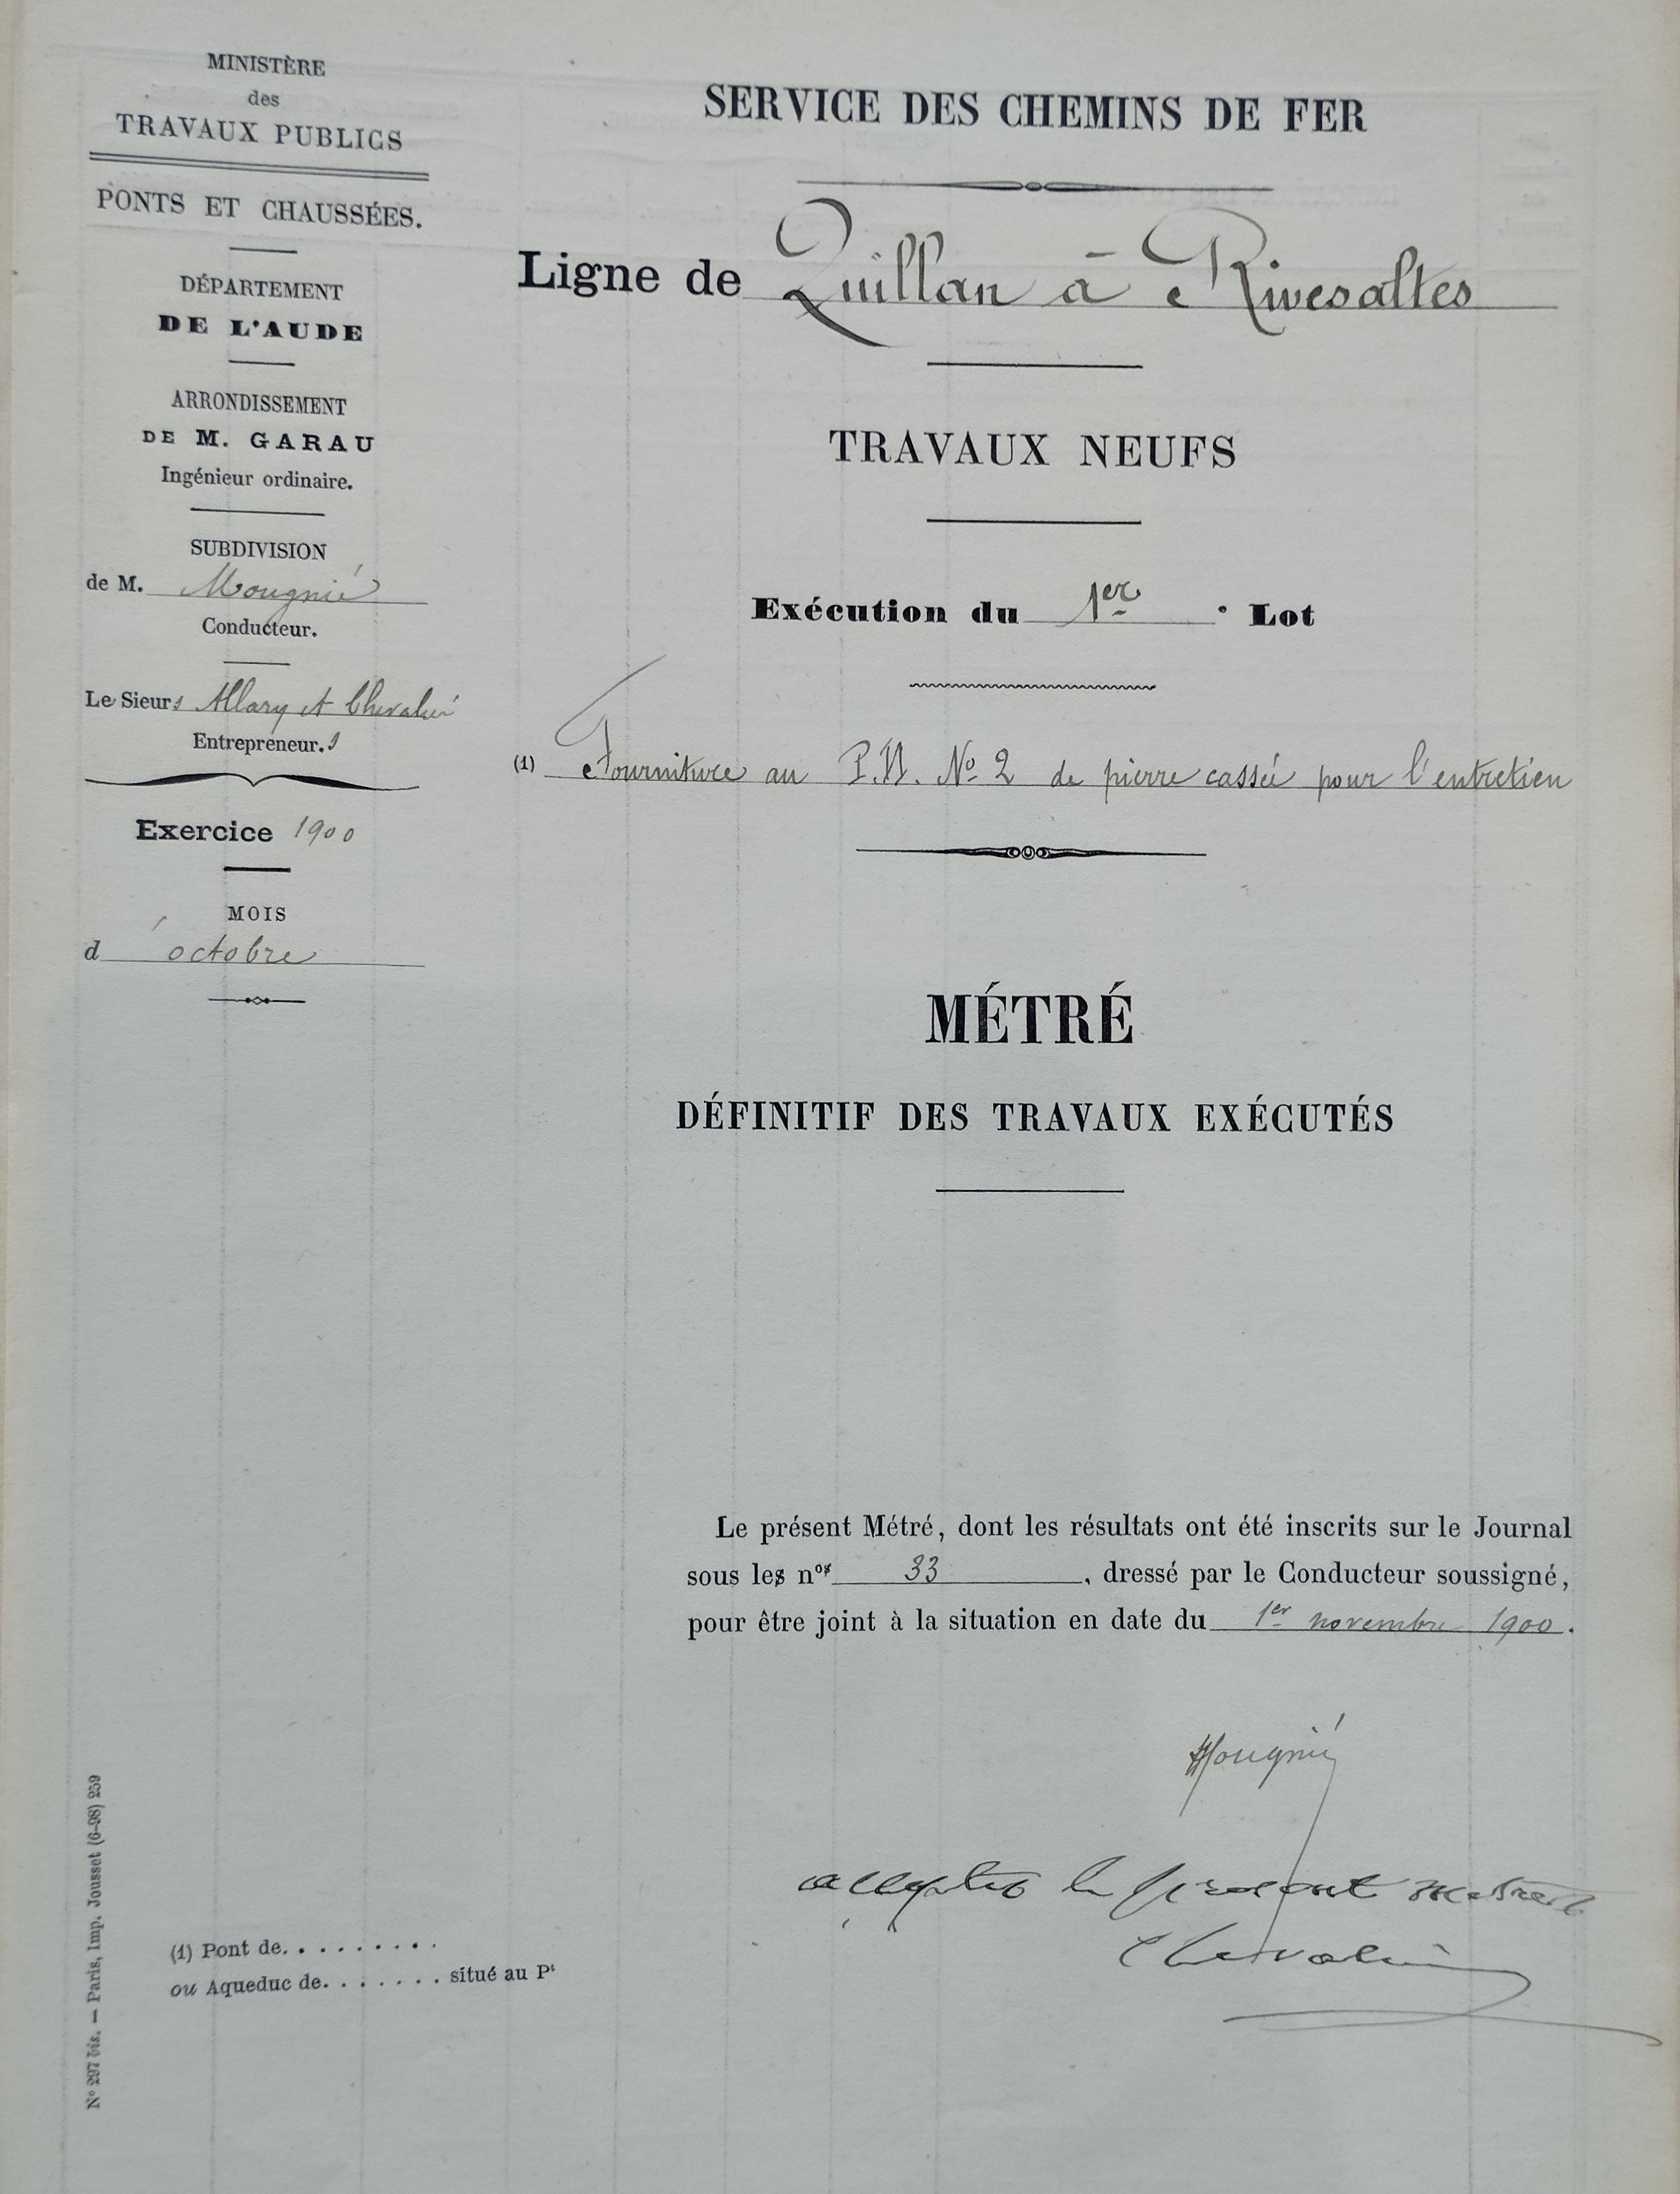 MINISTÈRE
des
TRAVAUX PUBLICS
PONTS ET CHAUSSÉES.
DÉPARTEMENT
DE L'AUDE
ARRONDISSEMENT
DE M. GARAU
Ingénieur ordinaire.
SUBDIVISION
de M. Mougnié
Conducteur.
Le Sieurs Allary et Chevalier
Entrepreneur.s
Exercice 1900
MOIS
d'octobre
SERVICE DES CHEMINS DE FER
Ligne de Quillan à Rivesaltes
TRAVAUX NEUFS
Exécution du 1er Lot
(1) Fourniture au P.N. No 2 de pierre cassée pour l'entretien
MÉTRÉ
DÉFINITIF DES TRAVAUX EXÉCUTÉS
Le présent Métré, dont les résultats ont été inscrits sur le Journal
sous les nos 33, dressé par le Conducteur soussigné,
pour être joint à la situation en date du 1er novembre 1900.
Mougnié
le present
Chevalier
(1) Pont de. . . . . . . . .
ou Aqueduc de. . . . . . . situé au Pt
N° 297 bis. — Paris, Imp. Jousset (6-98) 259